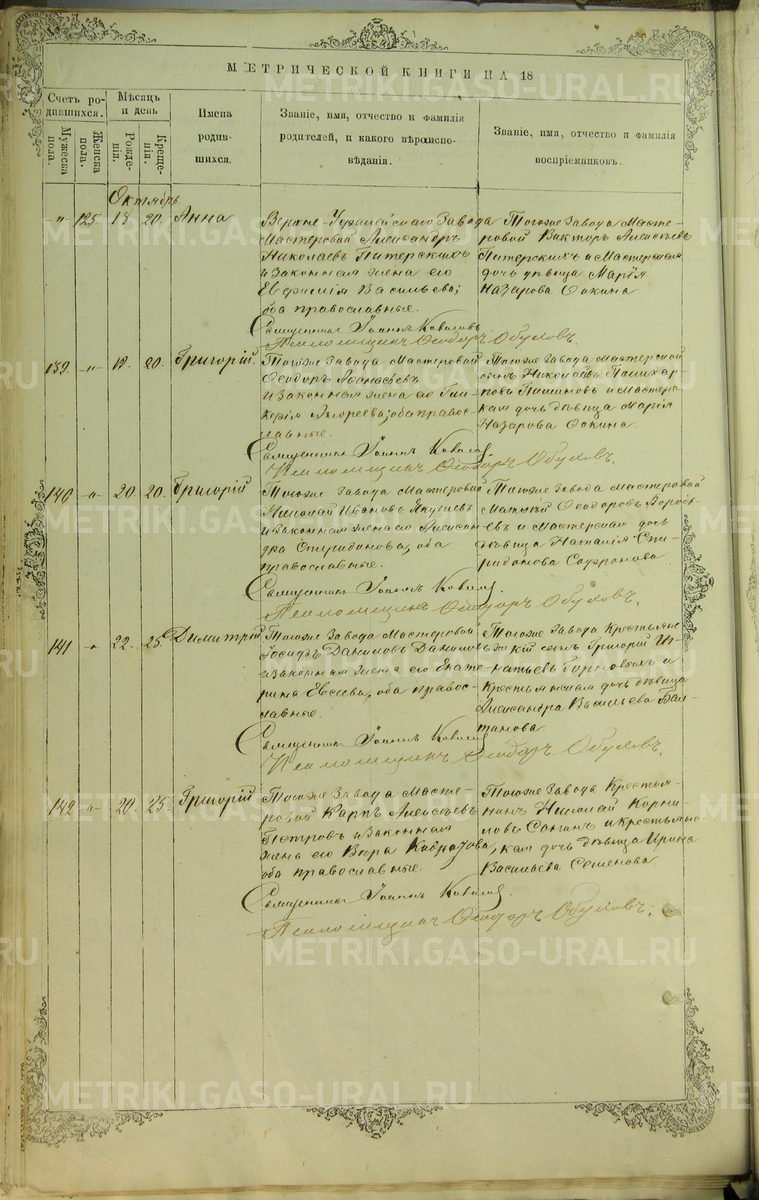 МЕТРИЧЕСКОЙ КНИГИ НА 18
Счетъ ро-
дившихся.
Мужеска
пола.
Женска
пола.
Мѣсяцъ
и день
Рожде-
нія.
Креще-
нія.
Имена
родив-
шихся.
Званіе, имя, отчество и фамилія
родителей, и какого вѣроиспо-
вѣданія.
Званіе, имя, отчество и фамилія
воспріемниковъ.
Октябрь
„ 125 18 20. Анна
Верхне-Уфалейскаго Завода
Мастеровой Александръ
Николаевъ Питерскихъ
и законная жена его
Васильева;
оба православные.
Священникъ Іоаннъ
Псаломщикъ Ѳеодоръ Обуховъ.
Тогоже Завода Масте-
ровой Викторъ Алексѣевъ
Питерскихъ и Мастерская
дочь дѣвица Марія
Назарова
139. „ 19. 20. Григорій.
Тогоже Завода Мастеровой
Ѳеодоръ
и законная жена его Гли-
керія Андреева; оба правос-
лавные.
Священникъ Іоаннъ
Псаломщикъ Ѳеодоръ Обуховъ.
Тогоже Завода Мастерской
сынъ Николай
и Мастерс-
кая дочь дѣвица Марія
Назарова
140 „ 20 20. Григорій
Тогоже Завода Мастеровой
Николай Ивановъ
и законная жена его Алексан-
дра Спиридонова, оба
православные.
Священникъ Іоаннъ
Псаломщикъ Ѳеодоръ Обуховъ.
Тогоже Завода Мастеровой
Ѳеодоровъ Воробь-
евъ и Мастерская дочь
дѣвица Наталія Спи-
ридонова Сафронова
141 „ 22. 25. Димитрій
Тогоже Завода Мастеровой
Іосифъ Даниловъ Даниловъ
и законная жена его Екате-
рина Евсеева, оба правос-
лавные.
Священникъ Іоаннъ
Псаломщикъ Ѳеодоръ Обуховъ.
Тогоже Завода Крестьянс-
кій сынъ Григорій Иг-
натьевъ и
Крестьянская дочь дѣвица
Александра Васильева
142 „ 20. 25. Григорій
Тогоже Завода Масте-
ровой Карпъ Алексѣевъ
Петровъ и законная
жена его Вѣра
оба православные.
Священникъ Іоаннъ
Псаломщикъ Ѳеодоръ Обуховъ.
Тогоже Завода Крестья-
нинъ Николай Корни-
ловъ и крестьянс-
кая дочь дѣвица Ирина
Васильева Семенова.
METRIKI.GASO-URAL.RU